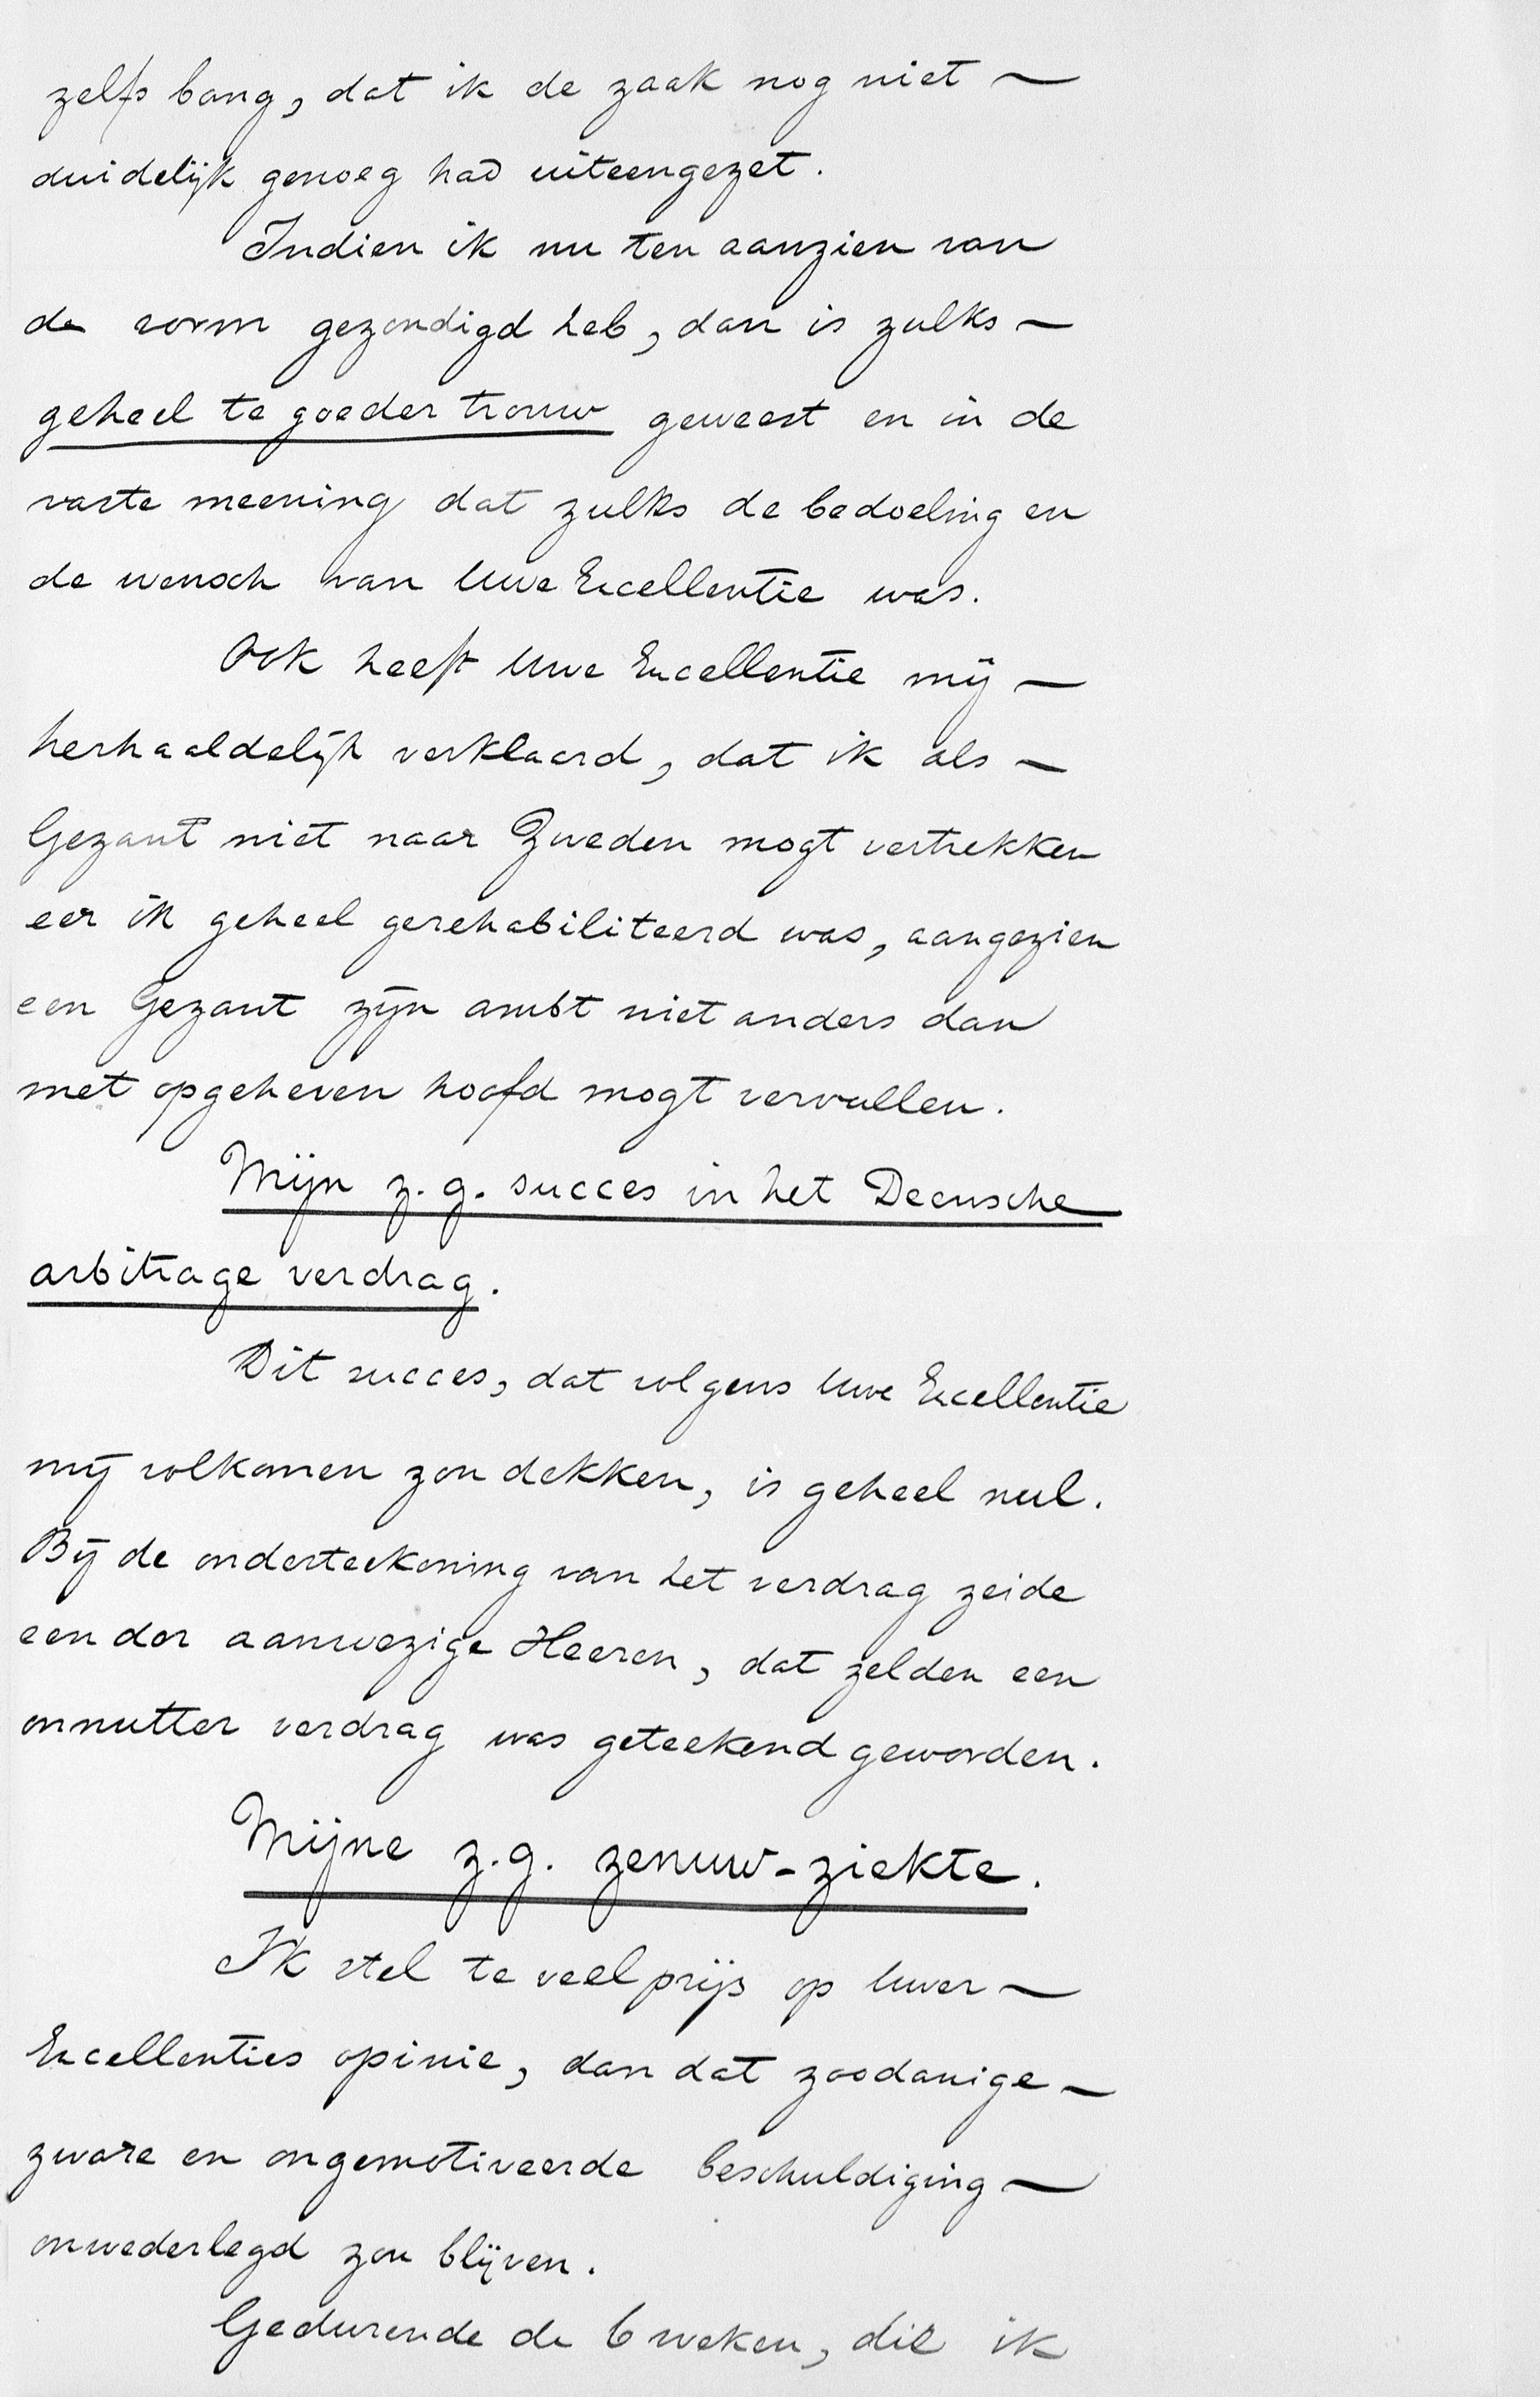 zelfs bang, dat ik de zaak nog niet —
duidelijk genoeg had uiteengezet.
Indien ik nu ten aanzien van
de vorm gezondigd heb, dan is zulks —
geheel te goeder trouw geweest en in de
vaste meening dat zulks de bedoeling en
de wensch van Uwe Excellentie was.
Ook heeft Uwe Excellentie mij —
herhaaldelijk verklaard, dat ik als —
Gezant niet naar Zweden mogt vertrekken
eer ik geheel gerehabiliteerd was, aangezien
een Gezant zijn ambt niet anders dan
met opgeheven hoofd mogt vervullen.
Mijn z.g. succes in het Deensche
arbitrage verdrag.
Dit succes, dat volgens Uwe Excellentie
mij volkomen zou dekken, is geheel nul.
Bij de onderteekening van het verdrag zeide
een der aanwezige Heeren, dat zelden een
onnutter verdrag was geteekend geworden.
Mijne z.g. zenuw-ziekte.
Ik stel te veel prijs op Uwer —
Excellenties opinie, dan dat zoodanige —
zware en ongemotiveerde beschuldiging —
onwederlegd zou blijven.
Gedurende de 6 weken, die ik